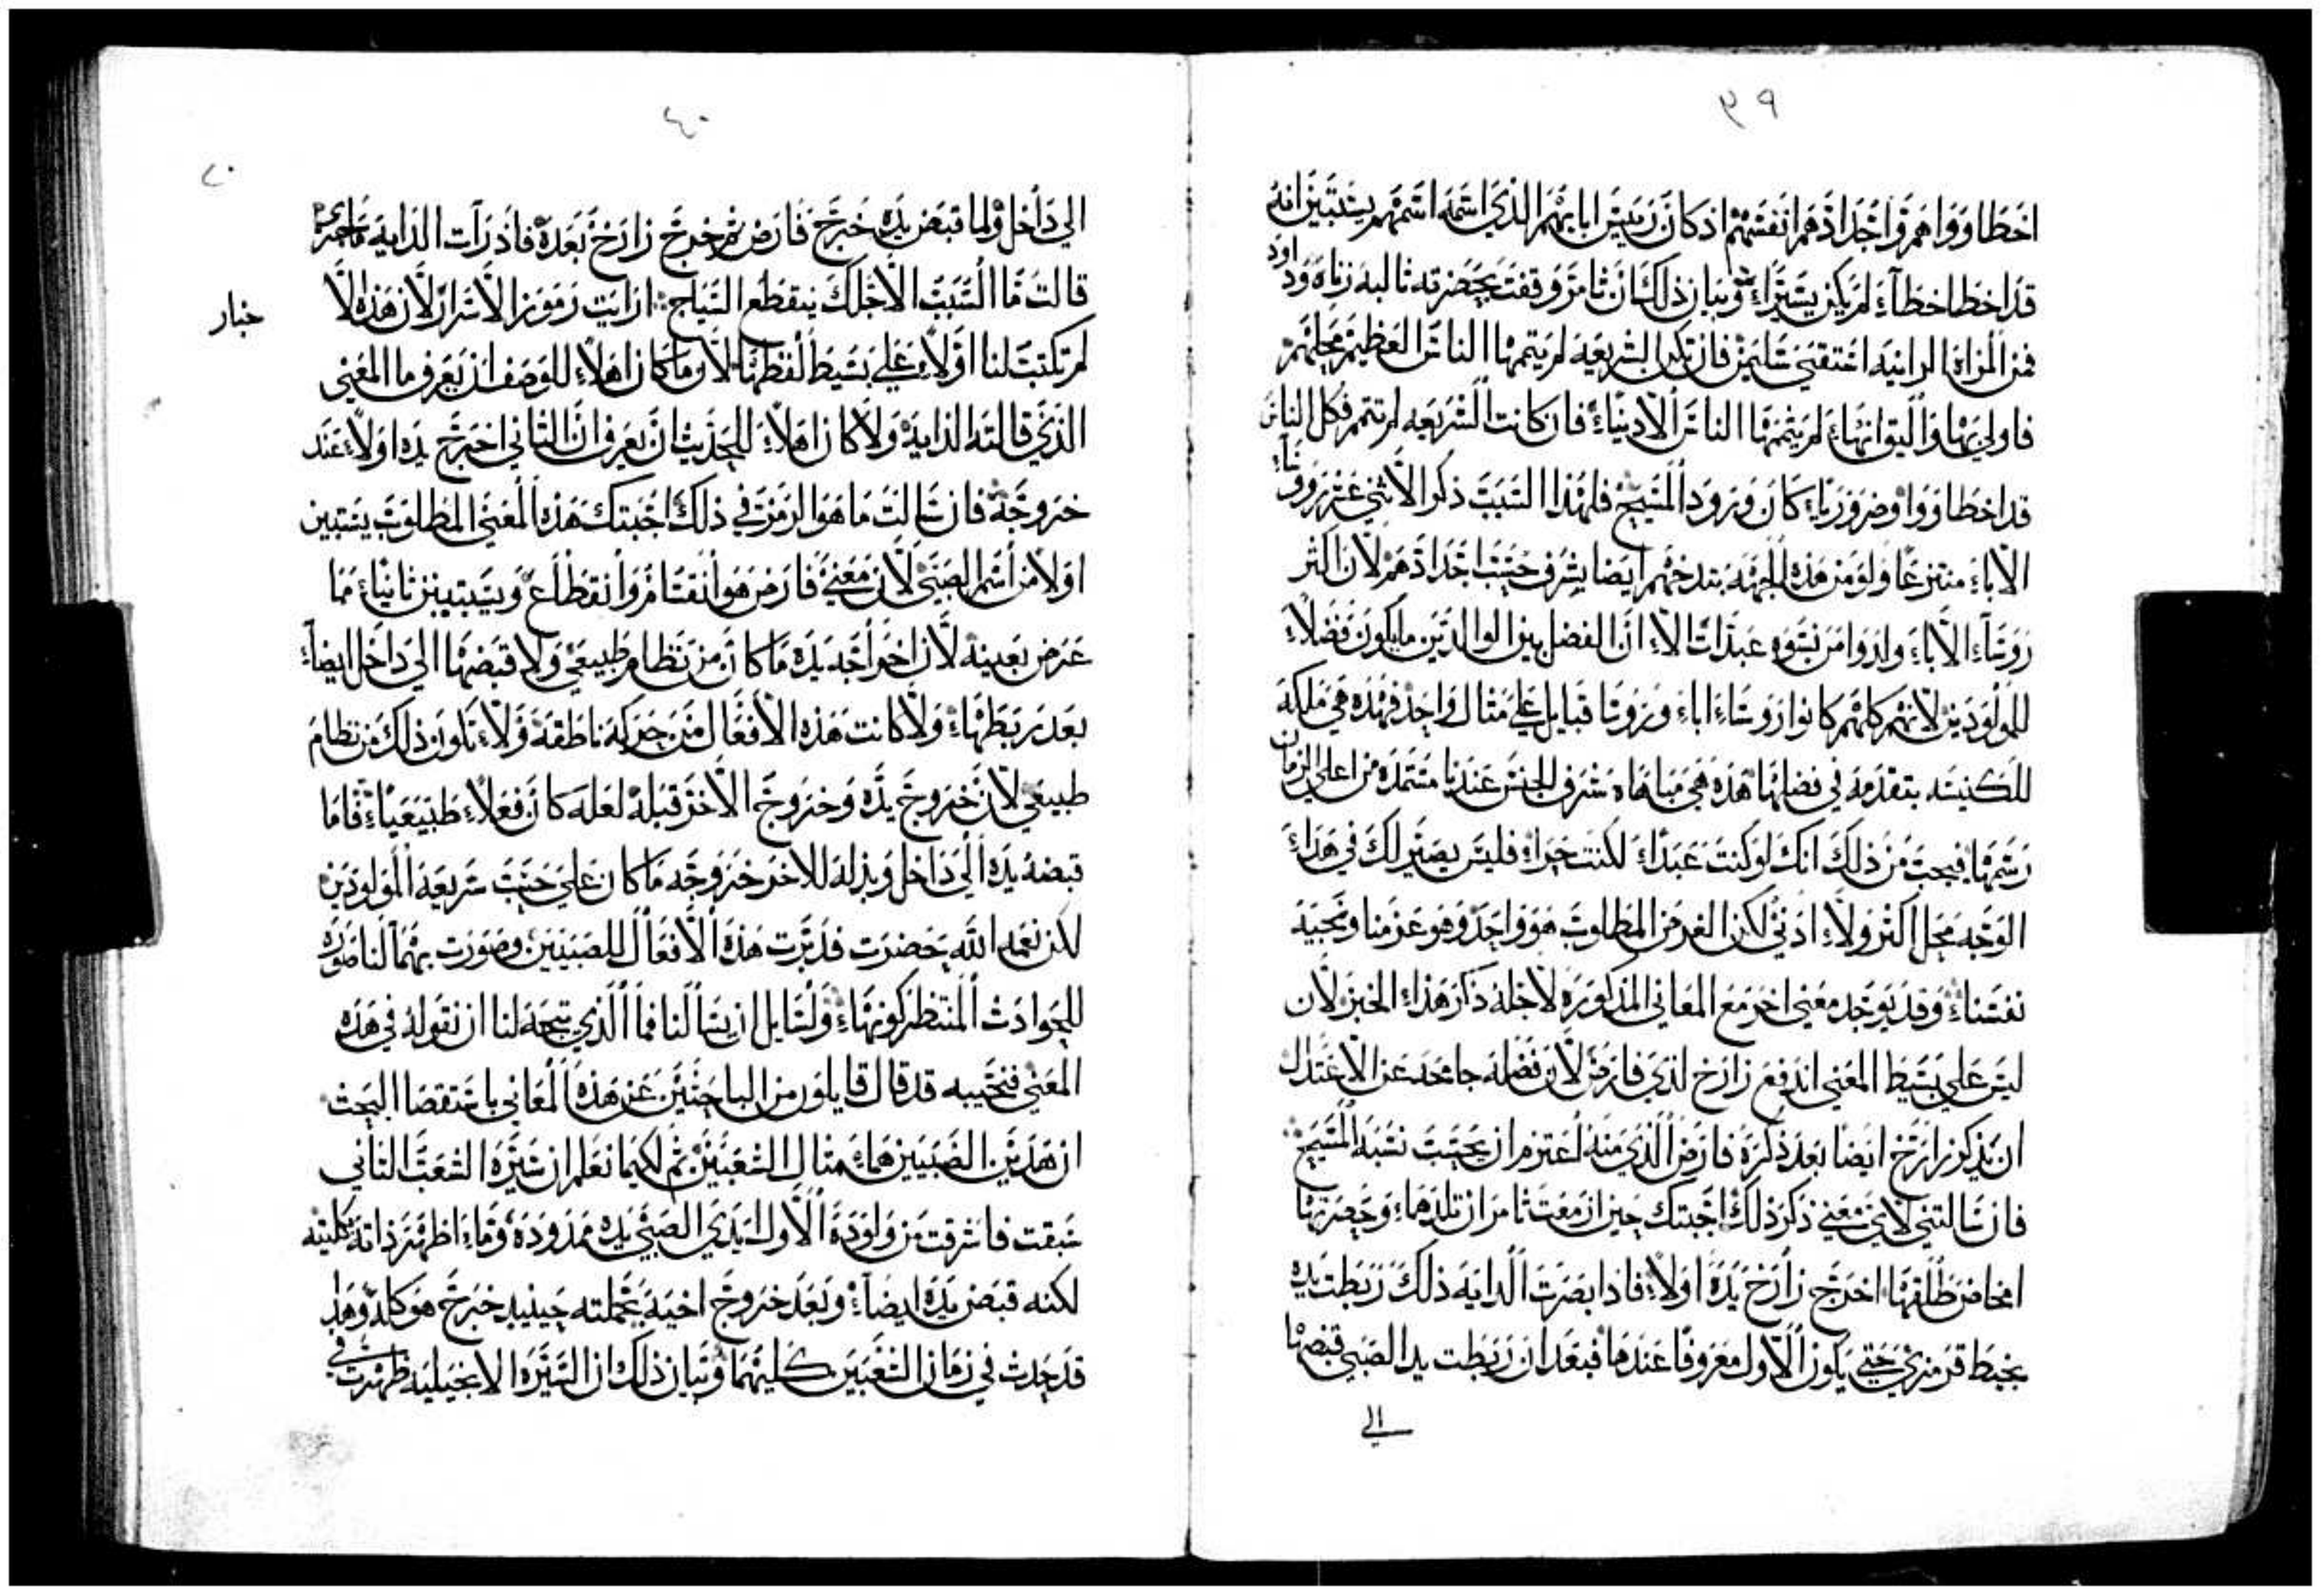 ٣٩
اخطاووا هم واجدادهم انفسهم اذ كان ريس ابايهم الذي اسمه اسمهم يستبين انه
قد اخطا خطاء لم يكن يسيرا وبيان ذلك ان ثامر وقفت بحضرته ثالبه زناه وداود
فمن المراة الزانيه اعتقني سليمن فان تكن الشريعه لم يتمها الناس العظيم محلهم
فاولي بها واليق انها لم يتمها الناس الادنياء فان كانت الشريعه لم تتم فكل الناس
قد اخطاووا وضروريا كان ورود المسيح فلهذا السبب ذكر الاثني عشر رووسا
الاباء منتزعا ولو من هذه الجهه بتدخهم ايضا بشرف حسب اجدادهم لان اكثر
روساء الاباء وادوا من نسوه عبدات الا ان الفضل بين الوالدين ما يكون فضلا
للمولودين لانهم كلهم كانوا روساء اباء وروسا قبايل علي مثال واحد فهذه هي ملكة
للكنيسه بتقدمه في فضايلها هذه هي مباهاه شرف الجنس عندنا مستمده من اعلي الزمان
رسمها فيجب من ذلك انك لو كنت عبدا لكنت حرا فليس يصير لك في هذا
الوجه محل اكثر ولا ادني لكن الغرض المطلوب هو واحد وهو عزمنا ونحبية
نفسنا وقد يوجد معني اخر مع المعاني المذكوره لاجله ذكر هذا الخبر لان
ليس علي بسيط المعني اندفع زارح لذي فارص لان فضله جامحه عن الاعتدال
ان يذكر زارح ايضا بعد ذكره فارص الذي منه اعتزم ان يحسب نسبة المسيح
فان سالتني لاي معني ذكر ذلك اجبتك حين ازمعت ثامر ان تلدهما وحضرها
امخاض طلقها اخرج زارح يده اولا فاذا بصرت الدايه ذلك ربطت يده
بخيط قرمزي حتي يكون الاول معروفا عندها فبعد ان ربطت يد الصبي قبضها
الي
٤٠
٢٠
الي داخل ولما قبض يده خرج فارص ثم خرج زارح بعده فاذ رات الدايه ما جري
قالت ما السبب الاجلك ينقطع السياج ارايت رموز الاسرار لان هذه الا
خبار
لم تكتب لنا اولا علي بسيط لفظها لان ما كان اهلا للوصف ان يعرف ما المعني
الذي قالته الدايه ولا كان اهلا للحديث ان يعرف ان الثاني اخرج يده اولا عند
خروجه فان سالت ما هو الرمز في ذلك اجبتك هذا المعني المطلوب يستبين
اولا من اسم الصبي لان معني فارص هو انقسام وانقطاع ويستبين ثانيا مما
عرض بعينه لان اخراجه يده ما كان من نظام طبيعي ولا قبضها الي داخل ايضا
بعد ربطها ولا كانت هذه الافعال من حركه ناطقه ولا تكون ذلك من نظام
طبيعي لان خروج يده وخروج الاخر قبله لعله كان فعلا طبيعيا فاما
قبضه يده الي داخل وبذله للاخر خروجه ما كان علي حسب شريعه المولودين
لكن نعمه الله حضرت فدبرت هذه الافعال للصبيين وصورت بهما لنا صورة
للحوادث المنتظر كونها ولسايل ان يسالنا فما الذي يتجه لنا ان نقوله في هذه
المعني فنجيبه قد قال قايلون من الباحثين عن هذه المعاني باستقصا البحث
ان هذين الصبيين هما مثال الشعبين ثم لكيما نعلم ان سيرة الشعب الثاني
سبقت فاشرقت من ولودة الاول ابدي الصبي يده ممدوده وما اظهر ذاته بكليته
لكنه قبض يده ايضا وبعد خروج اخيه بجملته حينيذ خرج هو كله وهذا
قد حدث في زمان الشعبين كليهما وبيان ذلك ان السيره الانجيليه ظهرت في